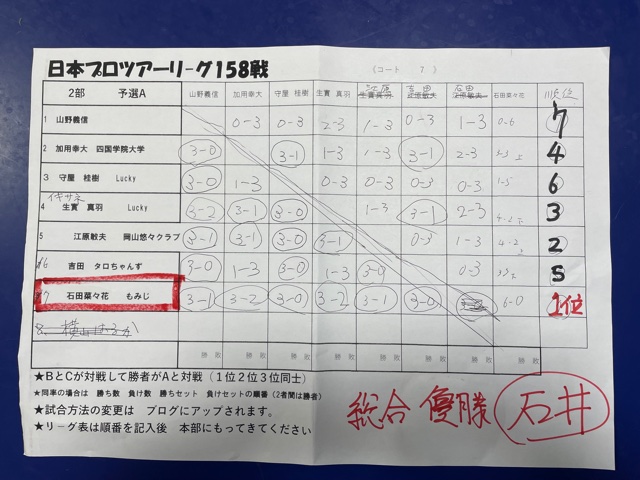 日本プロツアーリーグ158戦
(コート 7 )
2部 予選A 山野義信 加用幸大 守屋 桂樹 生實 真羽 江原 吉田 石田 石田菜々花 順位
1 山野義信 0-3 0-3 2-3 1-3 0-3 1-3 0-6 7
2 加用幸大 四国学院大学 3-0 3-1 1-3 1-3 3-1 2-3 4
3 守屋 桂樹 Lucky 3-0 1-3 0-3 0-3 0-3 0-3 1-5 6
イキザネ
4 生實 真羽 Lucky 3-2 3-1 3-0 1-3 3-1 2-3 4-2 3
5 江原敏夫 岡山悠々クラブ 3-1 3-1 3-0 3-1 0-3 1-3 4-2 2
6 吉田 タロちゃんず 3-0 1-3 3-0 1-3 3-0 0-3 5
7 石田菜々花 もみじ 3-1 3-2 3-0 3-2 3-1 3-0 6-0 1位
勝 敗 勝 敗 勝 敗 勝 敗 勝 敗 勝 敗 勝 敗 勝 敗
★BとCが対戦して勝者がAと対戦(1位2位3位同士)
★同率の場合は 勝ち数 負け数 勝ちセット 負けセットの順番(2者間は勝者)
★試合方法の変更は ブログにアップされます。
★リーグ表は順番を記入後 本部にもってきてください
総合 優勝 石井